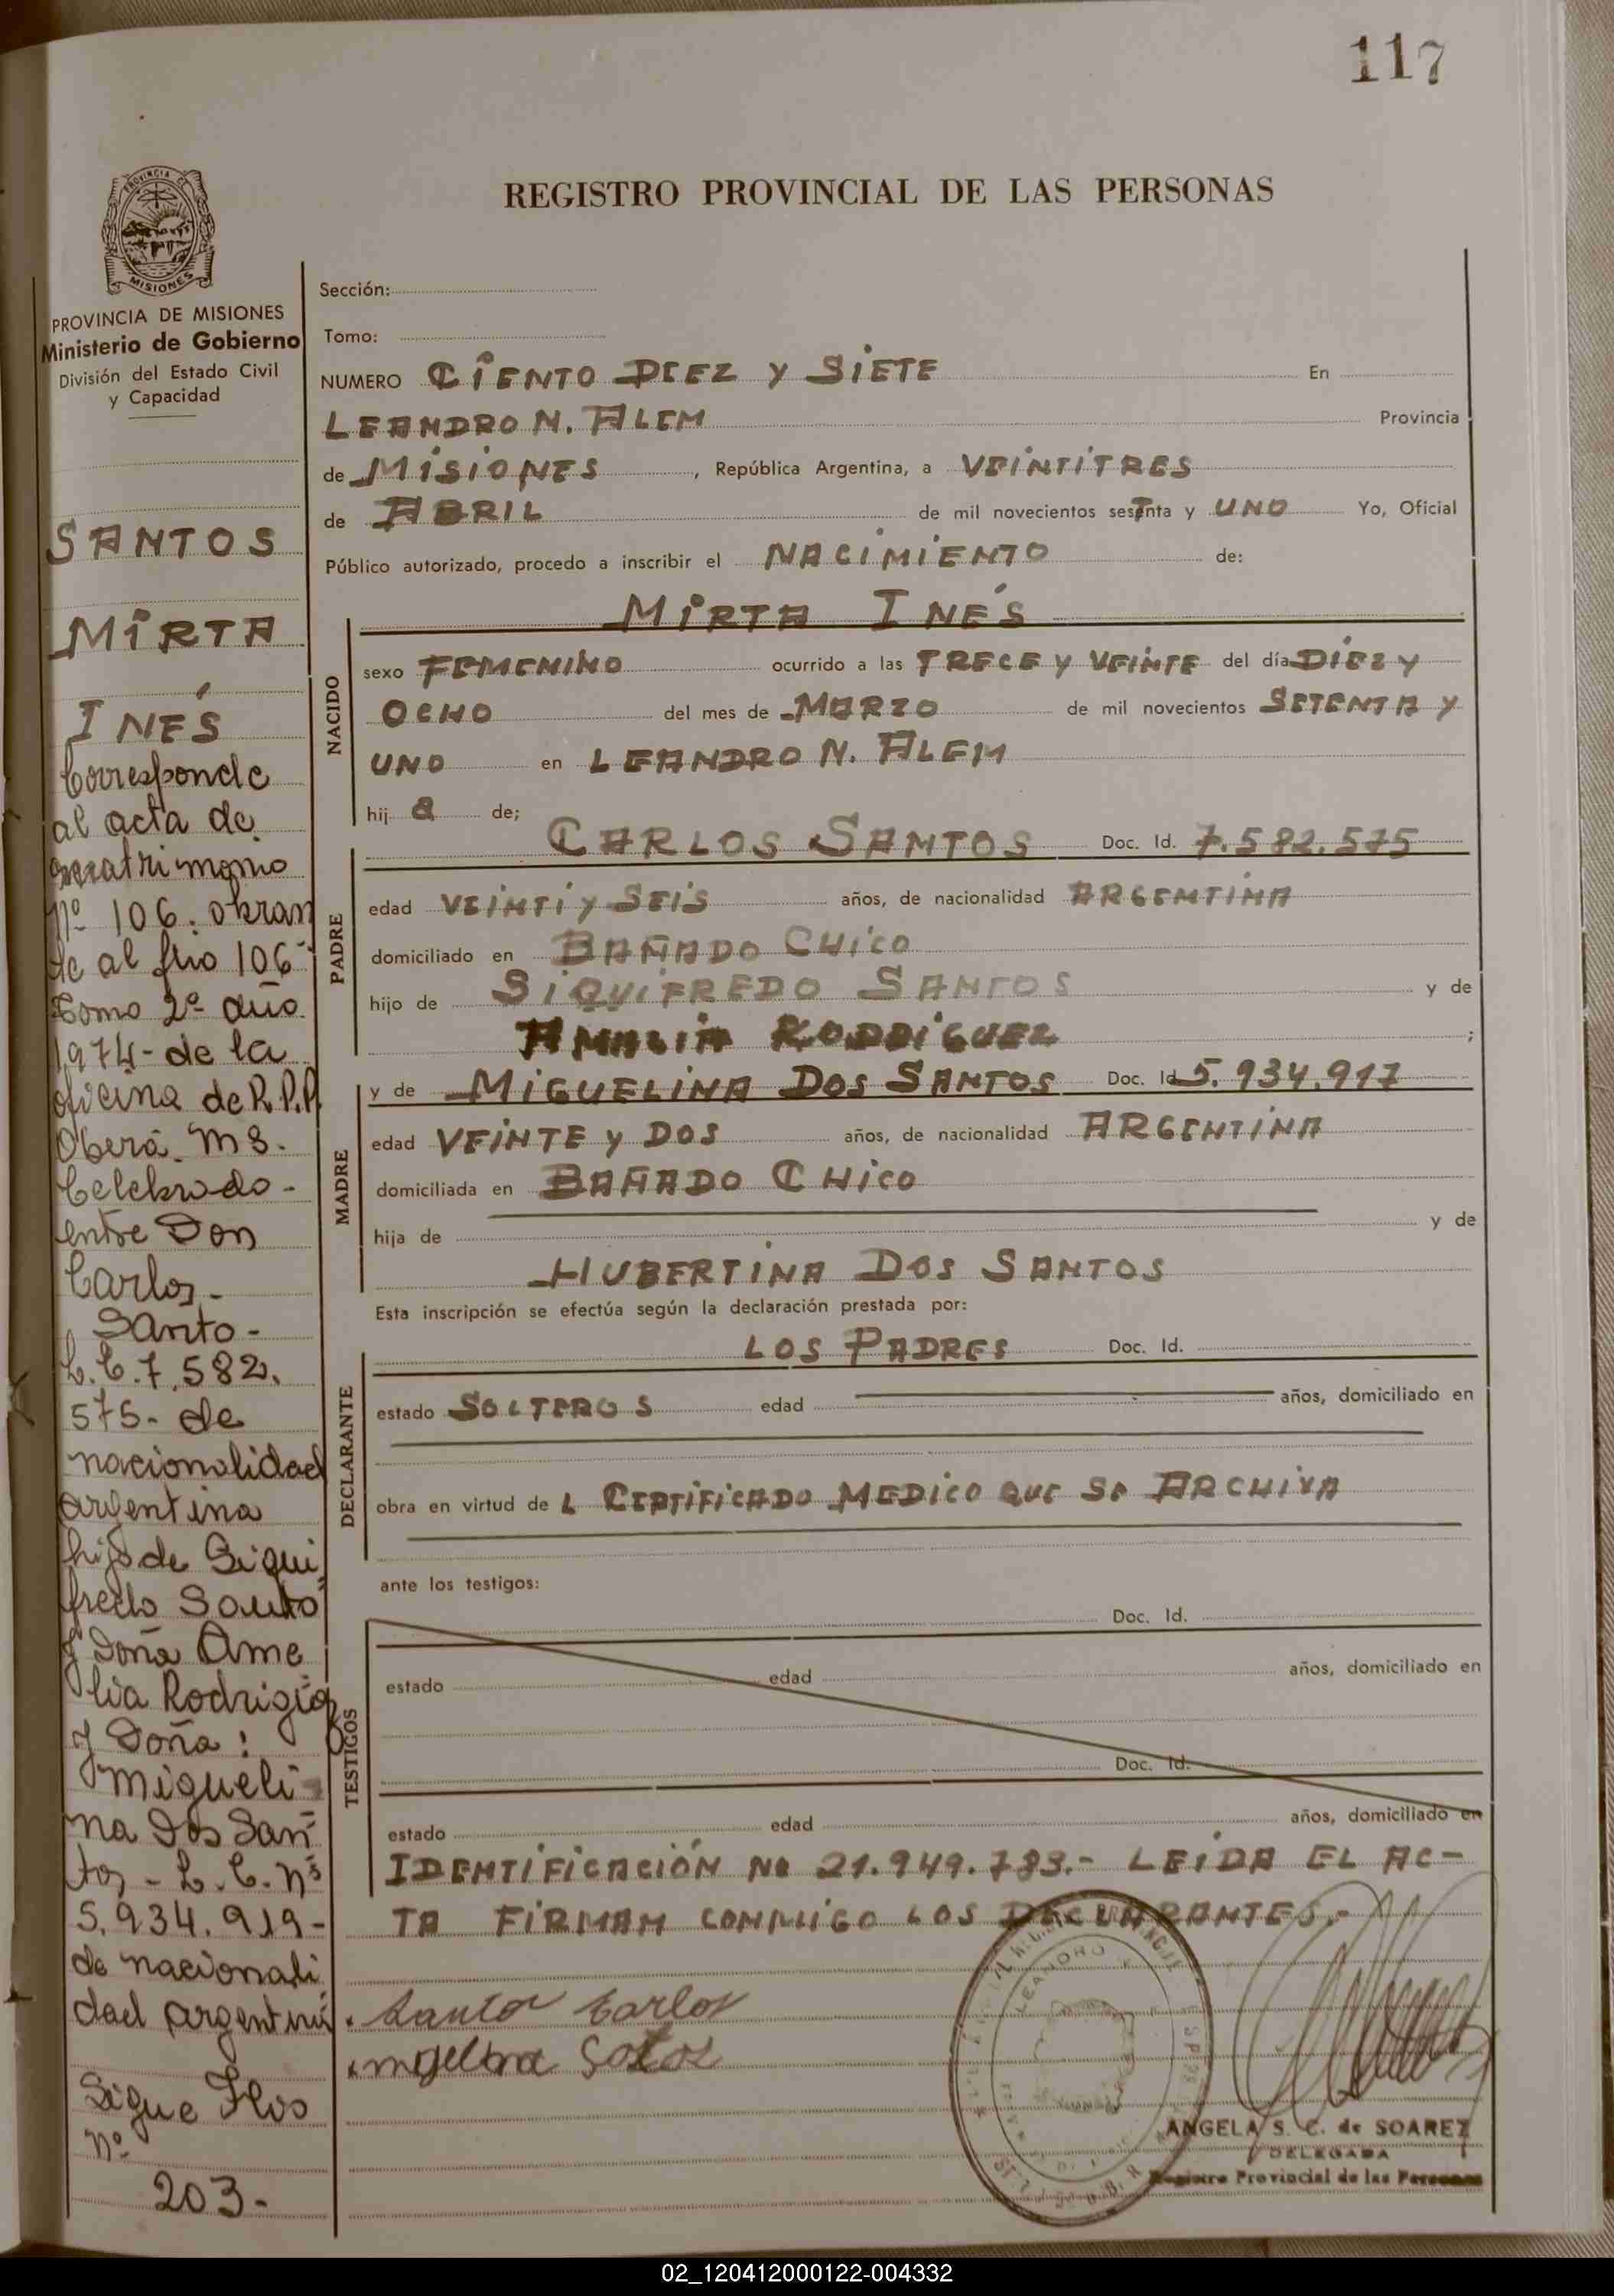 117
REGISTRO PROVINCIAL DE LAS PERSONAS
PROVINCIA DE
MISIONES
PROVINCIA DE MISIONES
Ministerio de Gobierno
División del Estado Civil
y Capacidad
SANTOS
MIRTA
INÉS
Corresponde
al acta de
matrimonio
Nº 106. obran
te al flio 106-
Tomo 2º año
1974- de la
oficina de R.P.P.
Oberá. Ms.
Celebrado-
entre Don
Carlos-
Santo-
L.E.7.582.
575- de
nacionalidad
argentina
hijo de Siqui
fredo Santo
y Doña Ame
lia Rodriguez
y Doña:
Migueli
na Dos San
tos - L.C. Nº
5.934.919-
de nacionali
dad argentina
Sigue Flio
Nº
203-
Sección:
Tomo:
NUMERO CIENTO DIEZ Y SIETE En
LEANDRO N. ALEM Provincia
de MISIONES, República Argentina, a VEINTITRES
de ABRIL de mil novecientos setenta y UNO Yo, Oficial
Público autorizado, procedo a inscribir el NACIMIENTO de:
MIRTA INÉS
NACIDO
sexo FEMENINO ocurrido a las TRECE Y VEINTE del día DIEZ Y
OCHO del mes de MARZO de mil novecientos SETENTA Y
UNO en LEANDRO N. ALEM
hij a de;
PADRE
CARLOS SANTOS Doc. Id. 7.582.575
edad VEINTI Y SEIS años, de nacionalidad ARGENTINA
domiciliado en BAÑADO CHICO
hijo de SIQUIFREDO SANTOS y de
AMALIA RODRIGUEZ ;
MADRE
y de MIGUELINA DOS SANTOS Doc. Id 5.934.917
edad VEINTE Y DOS años, de nacionalidad ARGENTINA
domiciliada en BAÑADO CHICO
hija de y de
HUBERTINA DOS SANTOS
Esta inscripción se efectúa según la declaración prestada por:
DECLARANTE
LOS PADRES Doc. Id.
estado SOLTEROS edad años, domiciliado en
obra en virtud de L CERTIFICADO MEDICO QUE SE ARCHIVA
ante los testigos:
TESTIGOS
Doc. Id.
estado edad años, domiciliado en
Doc. Id.
estado edad años, domiciliado en
IDENTIFICACIÓN No 21.949.783.- LEIDA EL AC-
TA FIRMAN CONMIGO LOS DECLARANTES.-
LEANDRO
Santos Carlos
ANGELA S. C. de SOAREZ
DELEGADA
Registro Provincial de las Personas
02_120412000122-004332